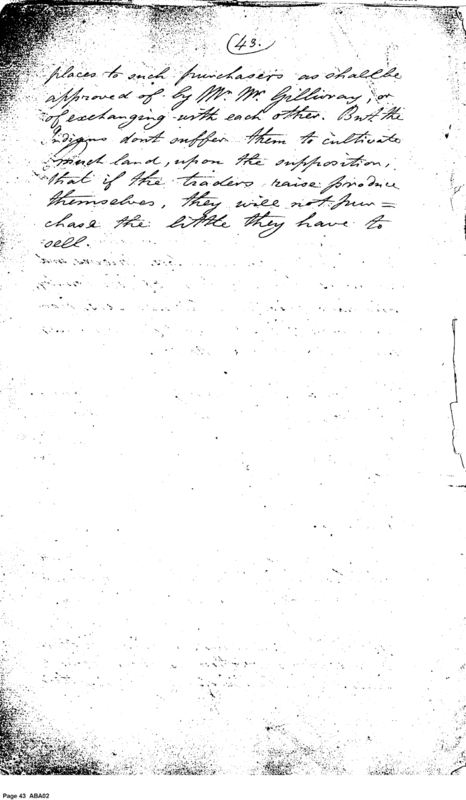 (43.)
places to such purchasers as shall be
approved of by Mr. Mc Gillivray, or
of exchanging with each other. But the
Indians dont suffer them to cultivate
much land, upon the supposition,
that if the traders raise produce
themselves, they will not pur=
chase the little they have to
sell.
Page 43 ABA02